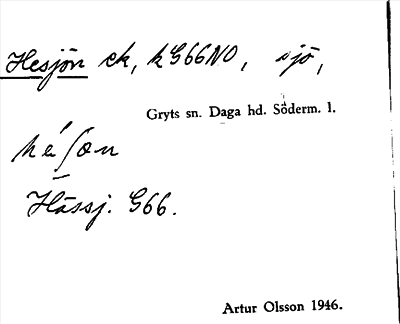 Hesjön ek, kG66NO, sjö,
Gryts sn. Daga hd. Söderm. l.
Hässj. G66.
Artur Olsson 1946.